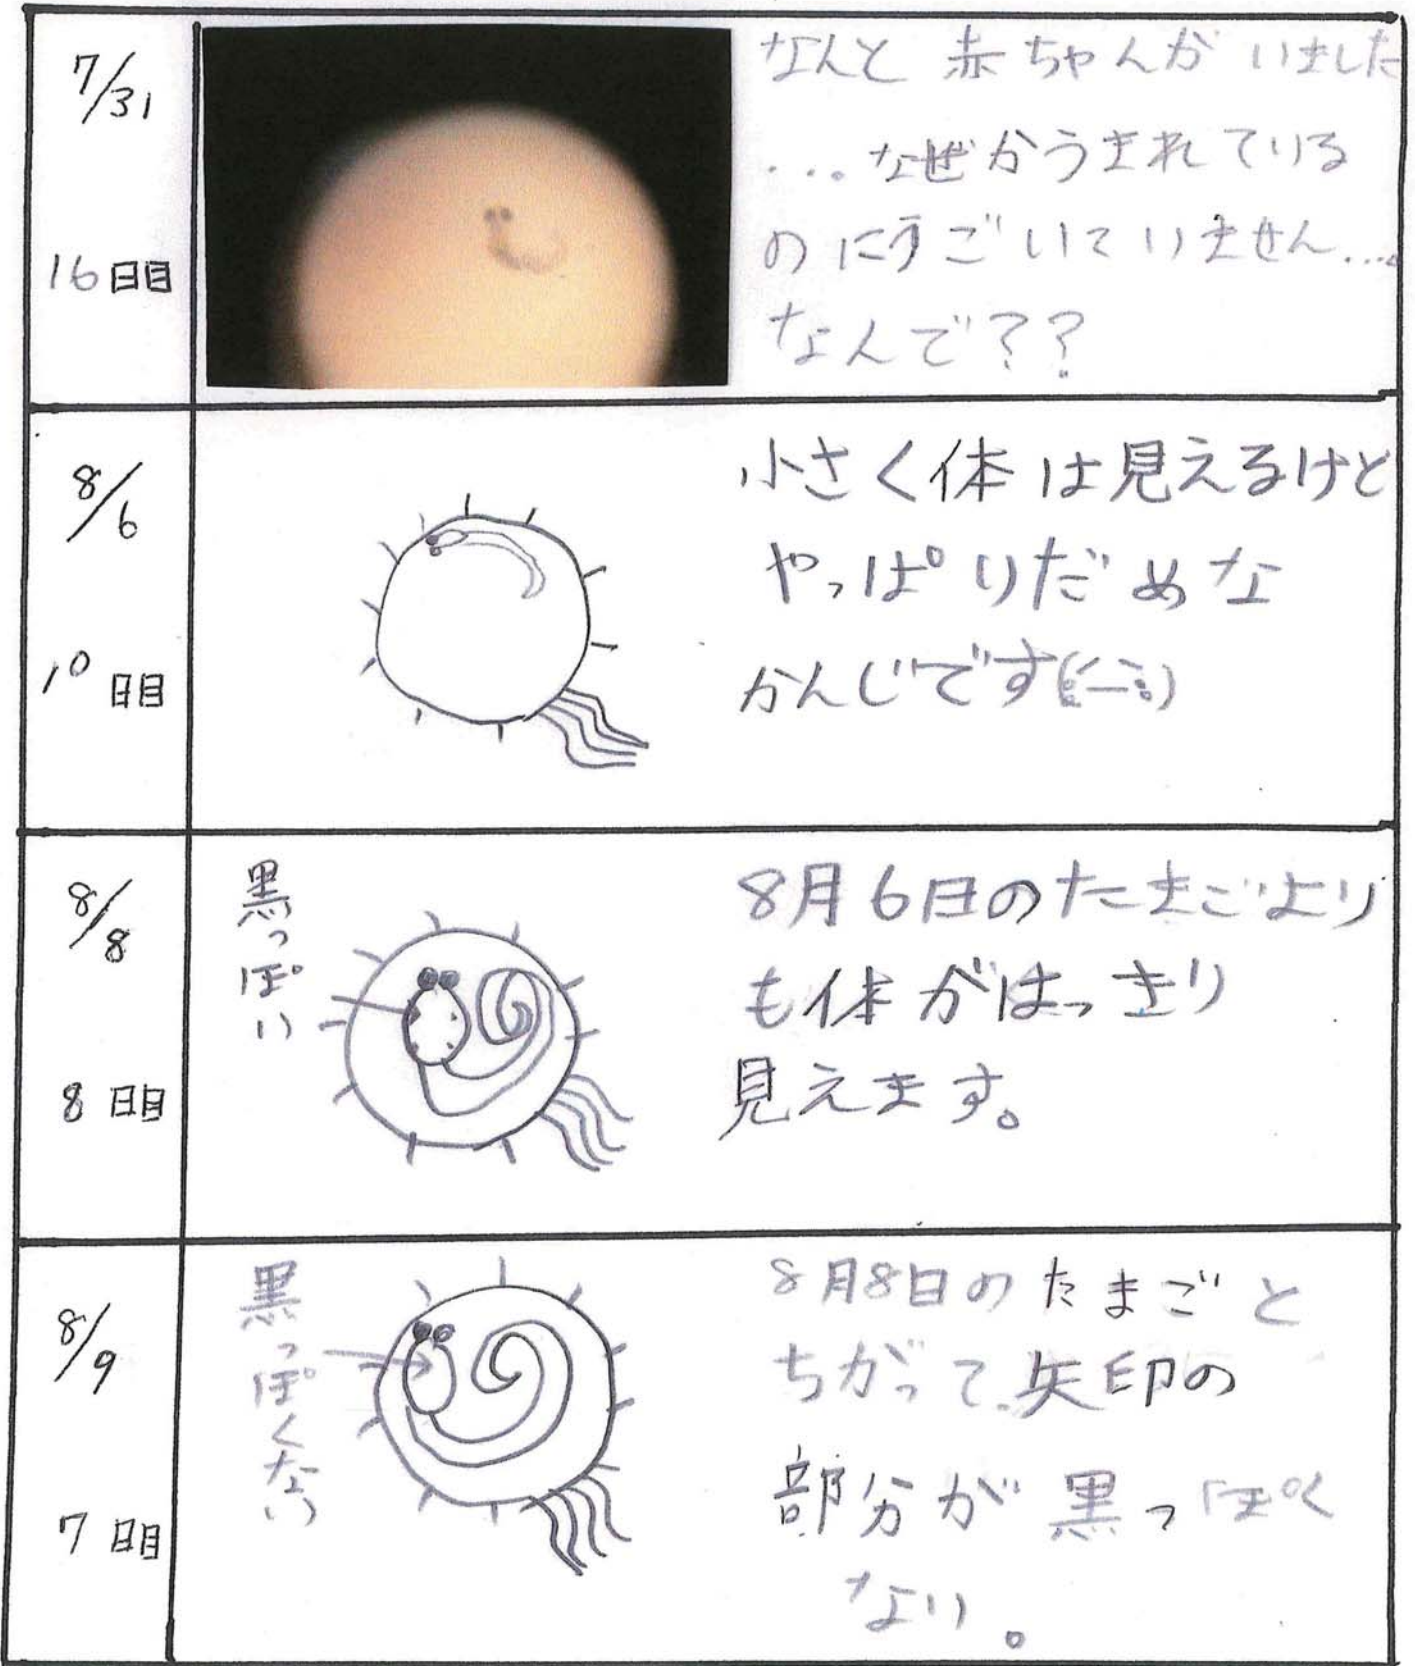 7/31
16日目
なんと赤ちゃんがいました
...。なぜかうまれている
のにうごいていません...。
なんで??
8/6
10日目
小さく体は見えるけど
やっぱりだめな
かんじです
8/8
8日目
黒っぽい
8月6日のたまごより
も体がはっきり
見えます。
8/9
7日目
黒っぽくない
8月8日のたまごと
ちがって矢印の
部分が黒っぽく
ない。